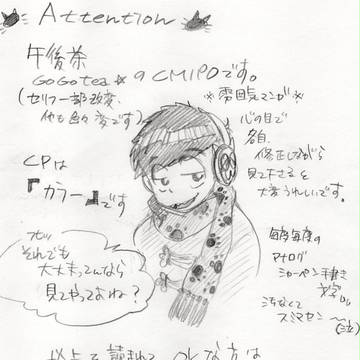 Attention
午後茶
GOGOtea☆のCMパロです。
(セリフ一部改変、
他も色々変です)
※雰囲気マンガ※
心の目で
各自、
修正しながら
見て下さると
大変うれしいです。
CPは
『カラー』です
フッ
それでも
大丈夫ってんなら
見てやってよね?
毎度毎度の
アナログ
シャーペン手書き
文字。
汚なくて
スミマセン〜
(泣)
以上で読まれて OKな方は